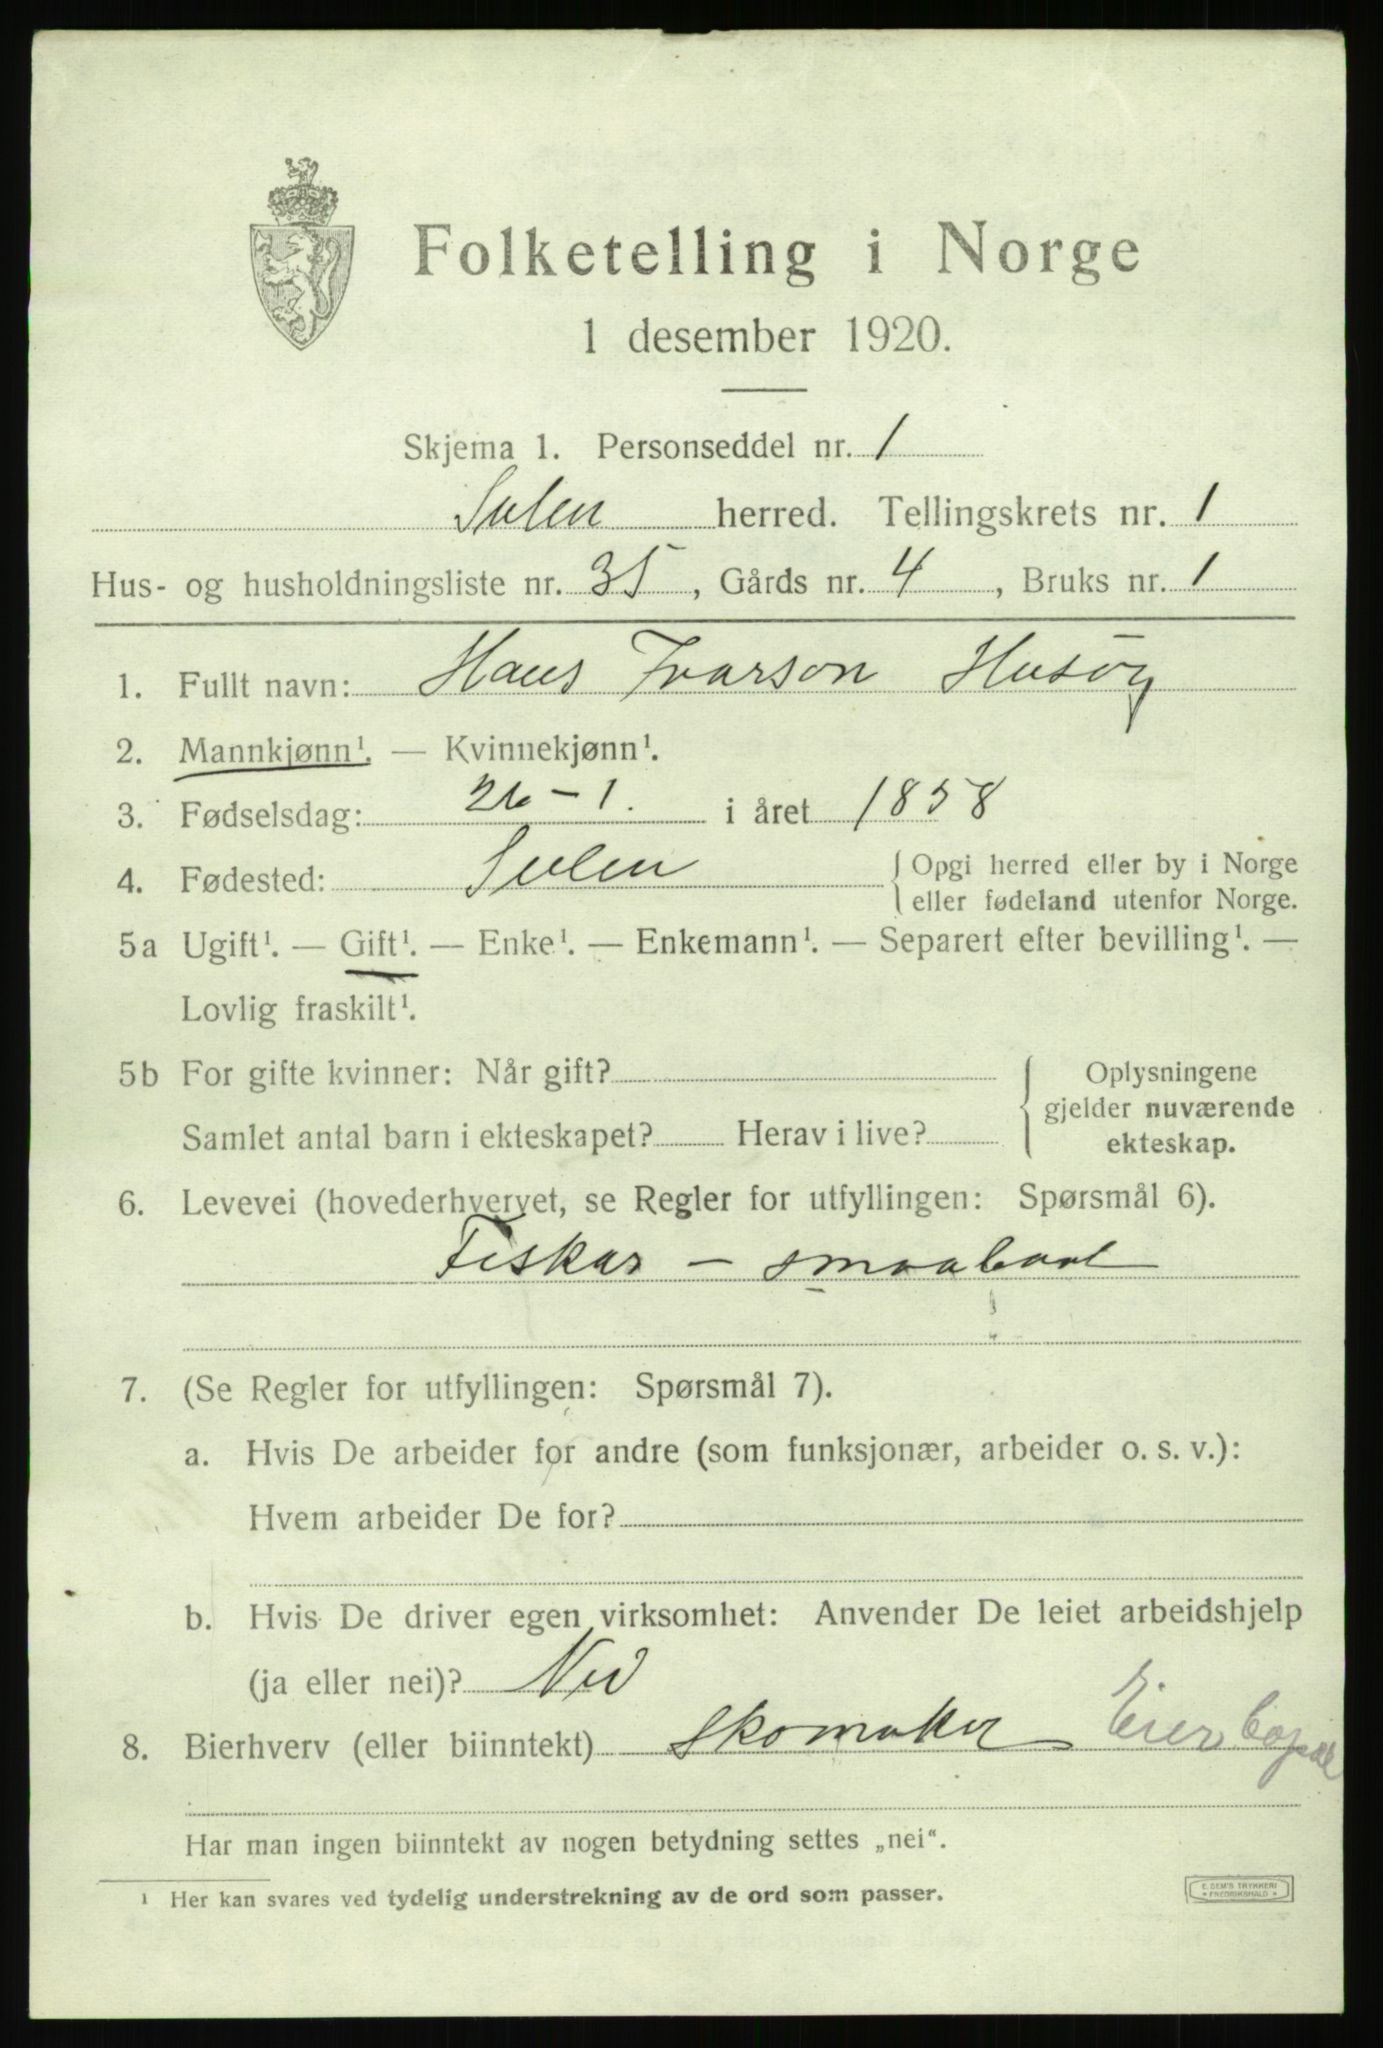 Folketelling i Norge
1 desember 1920.
Skjema 1. Personseddel nr. 1
Sulen herred. Tellingskrets nr. 1
Hus- og husholdningsliste nr. 35, Gårds nr. 4, Bruks nr. 1
1. Fullt navn: Hans Ivarson Husöy
2. Mannkjønn¹. — Kvinnekjønn¹.
3. Fødselsdag: 26-1. i året 1858
4. Fødested: Sulen { Opgi herred eller by i Norge
eller fødeland utenfor Norge.
5a Ugift¹. — Gift¹. — Enke¹. — Enkemann¹. — Separert efter bevilling¹. —
Lovlig fraskilt¹.
5b For gifte kvinner: Når gift? { Oplysningene
gjelder nuværende
Samlet antal barn i ekteskapet? Herav i live?
ekteskap.
6. Levevei (hovederhvervet, se Regler for utfyllingen: Spørsmål 6).
Fiskar -
7. (Se Regler for utfyllingen: Spørsmål 7).
a. Hvis De arbeider for andre (som funksjonær, arbeider o. s. v.):
Hvem arbeider De for?
b. Hvis De driver egen virksomhet: Anvender De leiet arbeidshjelp
(ja eller nei)? Nei
8. Bierhverv (eller biinntekt) Skomaker Eier
Har man ingen biinntekt av nogen betydning settes „nei“.
¹ Her kan svares ved tydelig understrekning av de ord som passer.
E. SEM'S TRYKKERI
* FREDRIKSHALD *